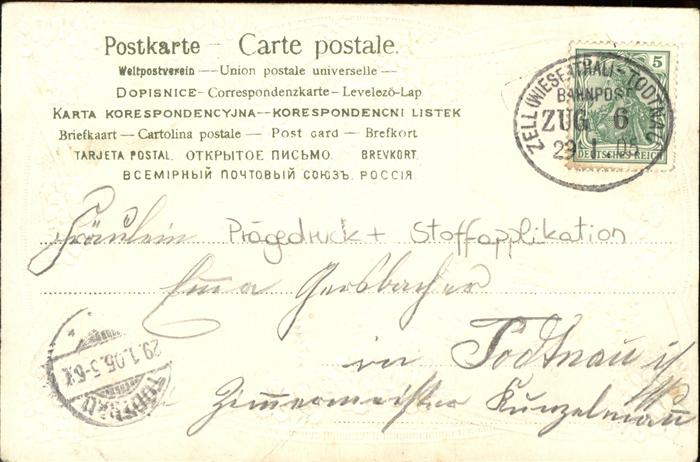 Postkarte — Carte postale.
Weltpostverein — Union postale universelle —
DOPISNICE - Correspondenzkarte - Levelezö-Lap
KARTA KORESPONDENCYJNA — KORESPONDENCNI LISTEK
Briefkaart — Cartolina postale — Post card — Brefkort
TARJETA POSTAL. ОТКРЫТОЕ ПИСЬМО. BREVKORT.
ВСЕМІРНЫЙ ПОЧТОВЫЙ СОЮЗЪ. РОССІЯ.
5
DEUTSCHES REICH
ZELL (WIESENTHAL) - TODTNAU
BAHNPOST
ZUG 6
29 1 05
Fräulein
Prägedruck + Stoffapplikation
Emma Gersbacher
in Todtnau
Zimmermeister
29.1.05. 5-6
TODTNAU